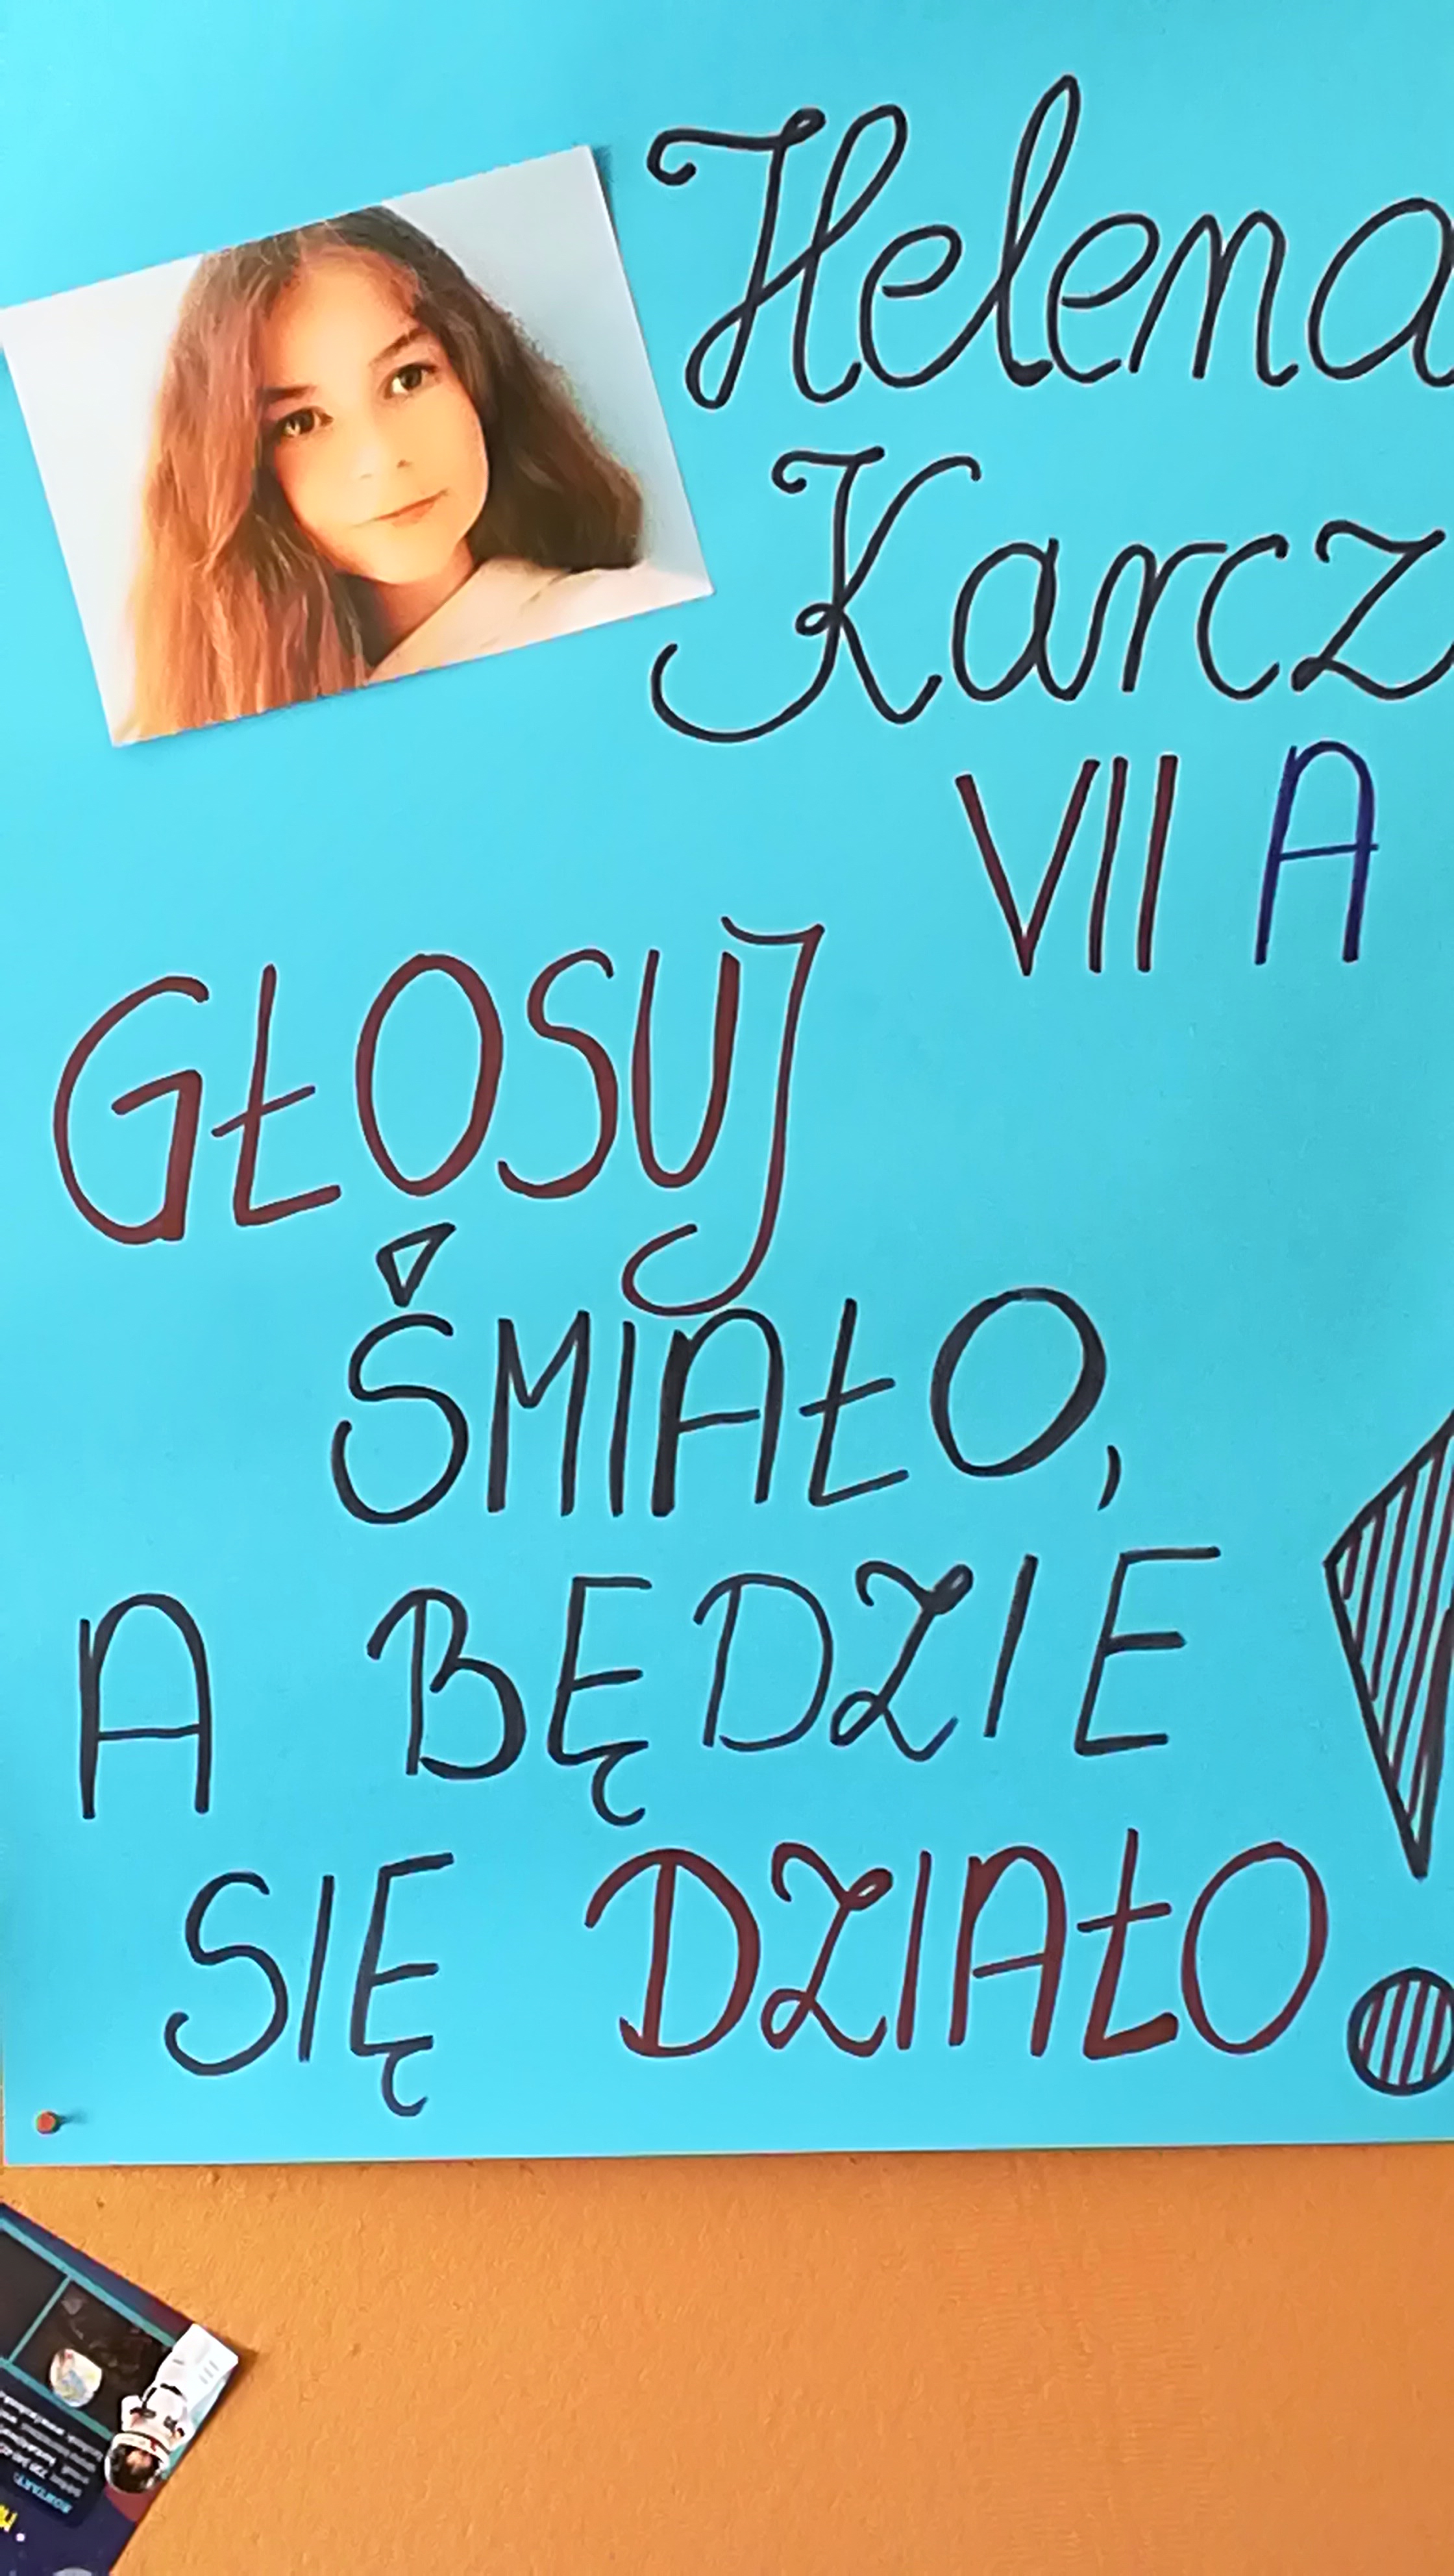 Helena
Karcz
VII A
GŁOSUJ
ŚMIAŁO,
A BĘDZIE
SIĘ DZIAŁO!
KONTAKT: